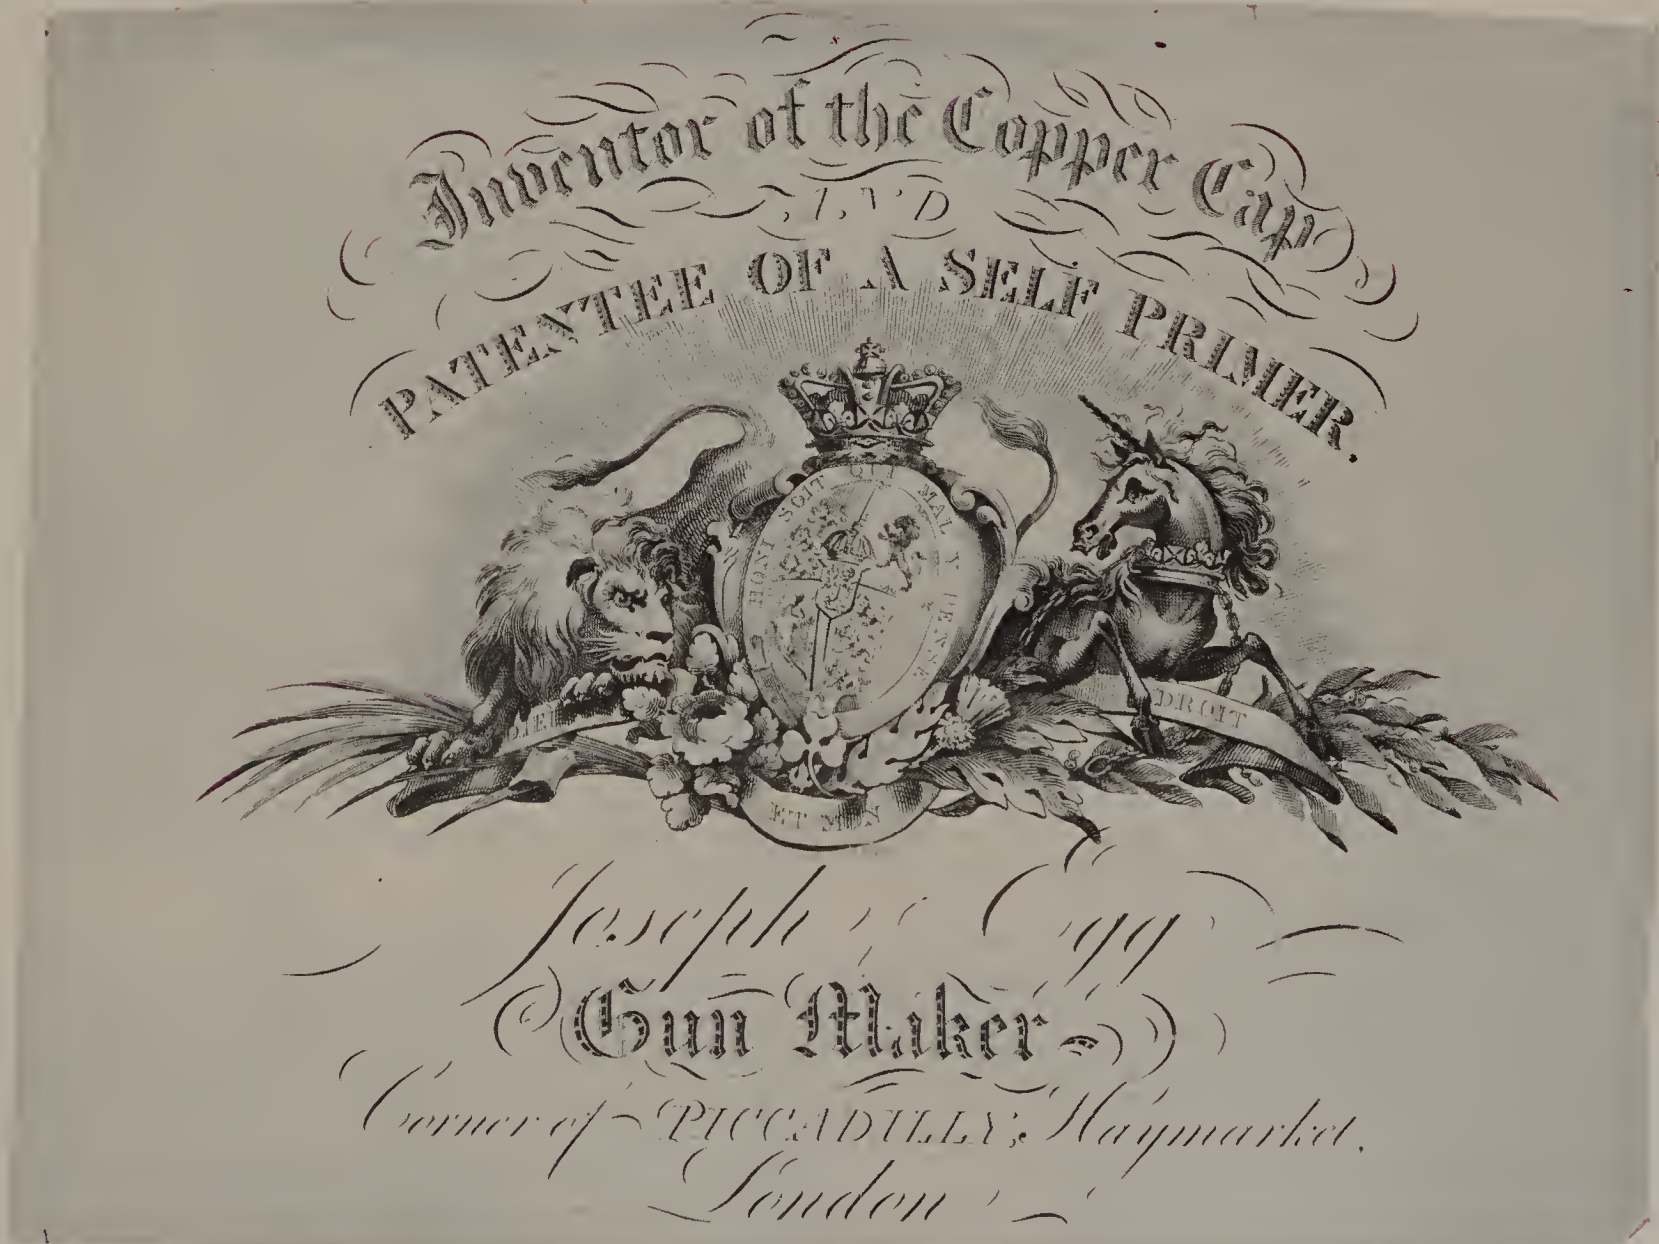 Inventor of the Copper Cap
AND
PATENTEE OF A SELF PRIMER.
HONI SOIT QUI MAL Y PENSE
DIEU
ET MON
DROIT
Joseph Egg
Gun Maker
Corner of PICCADILLY, Haymarket.
London